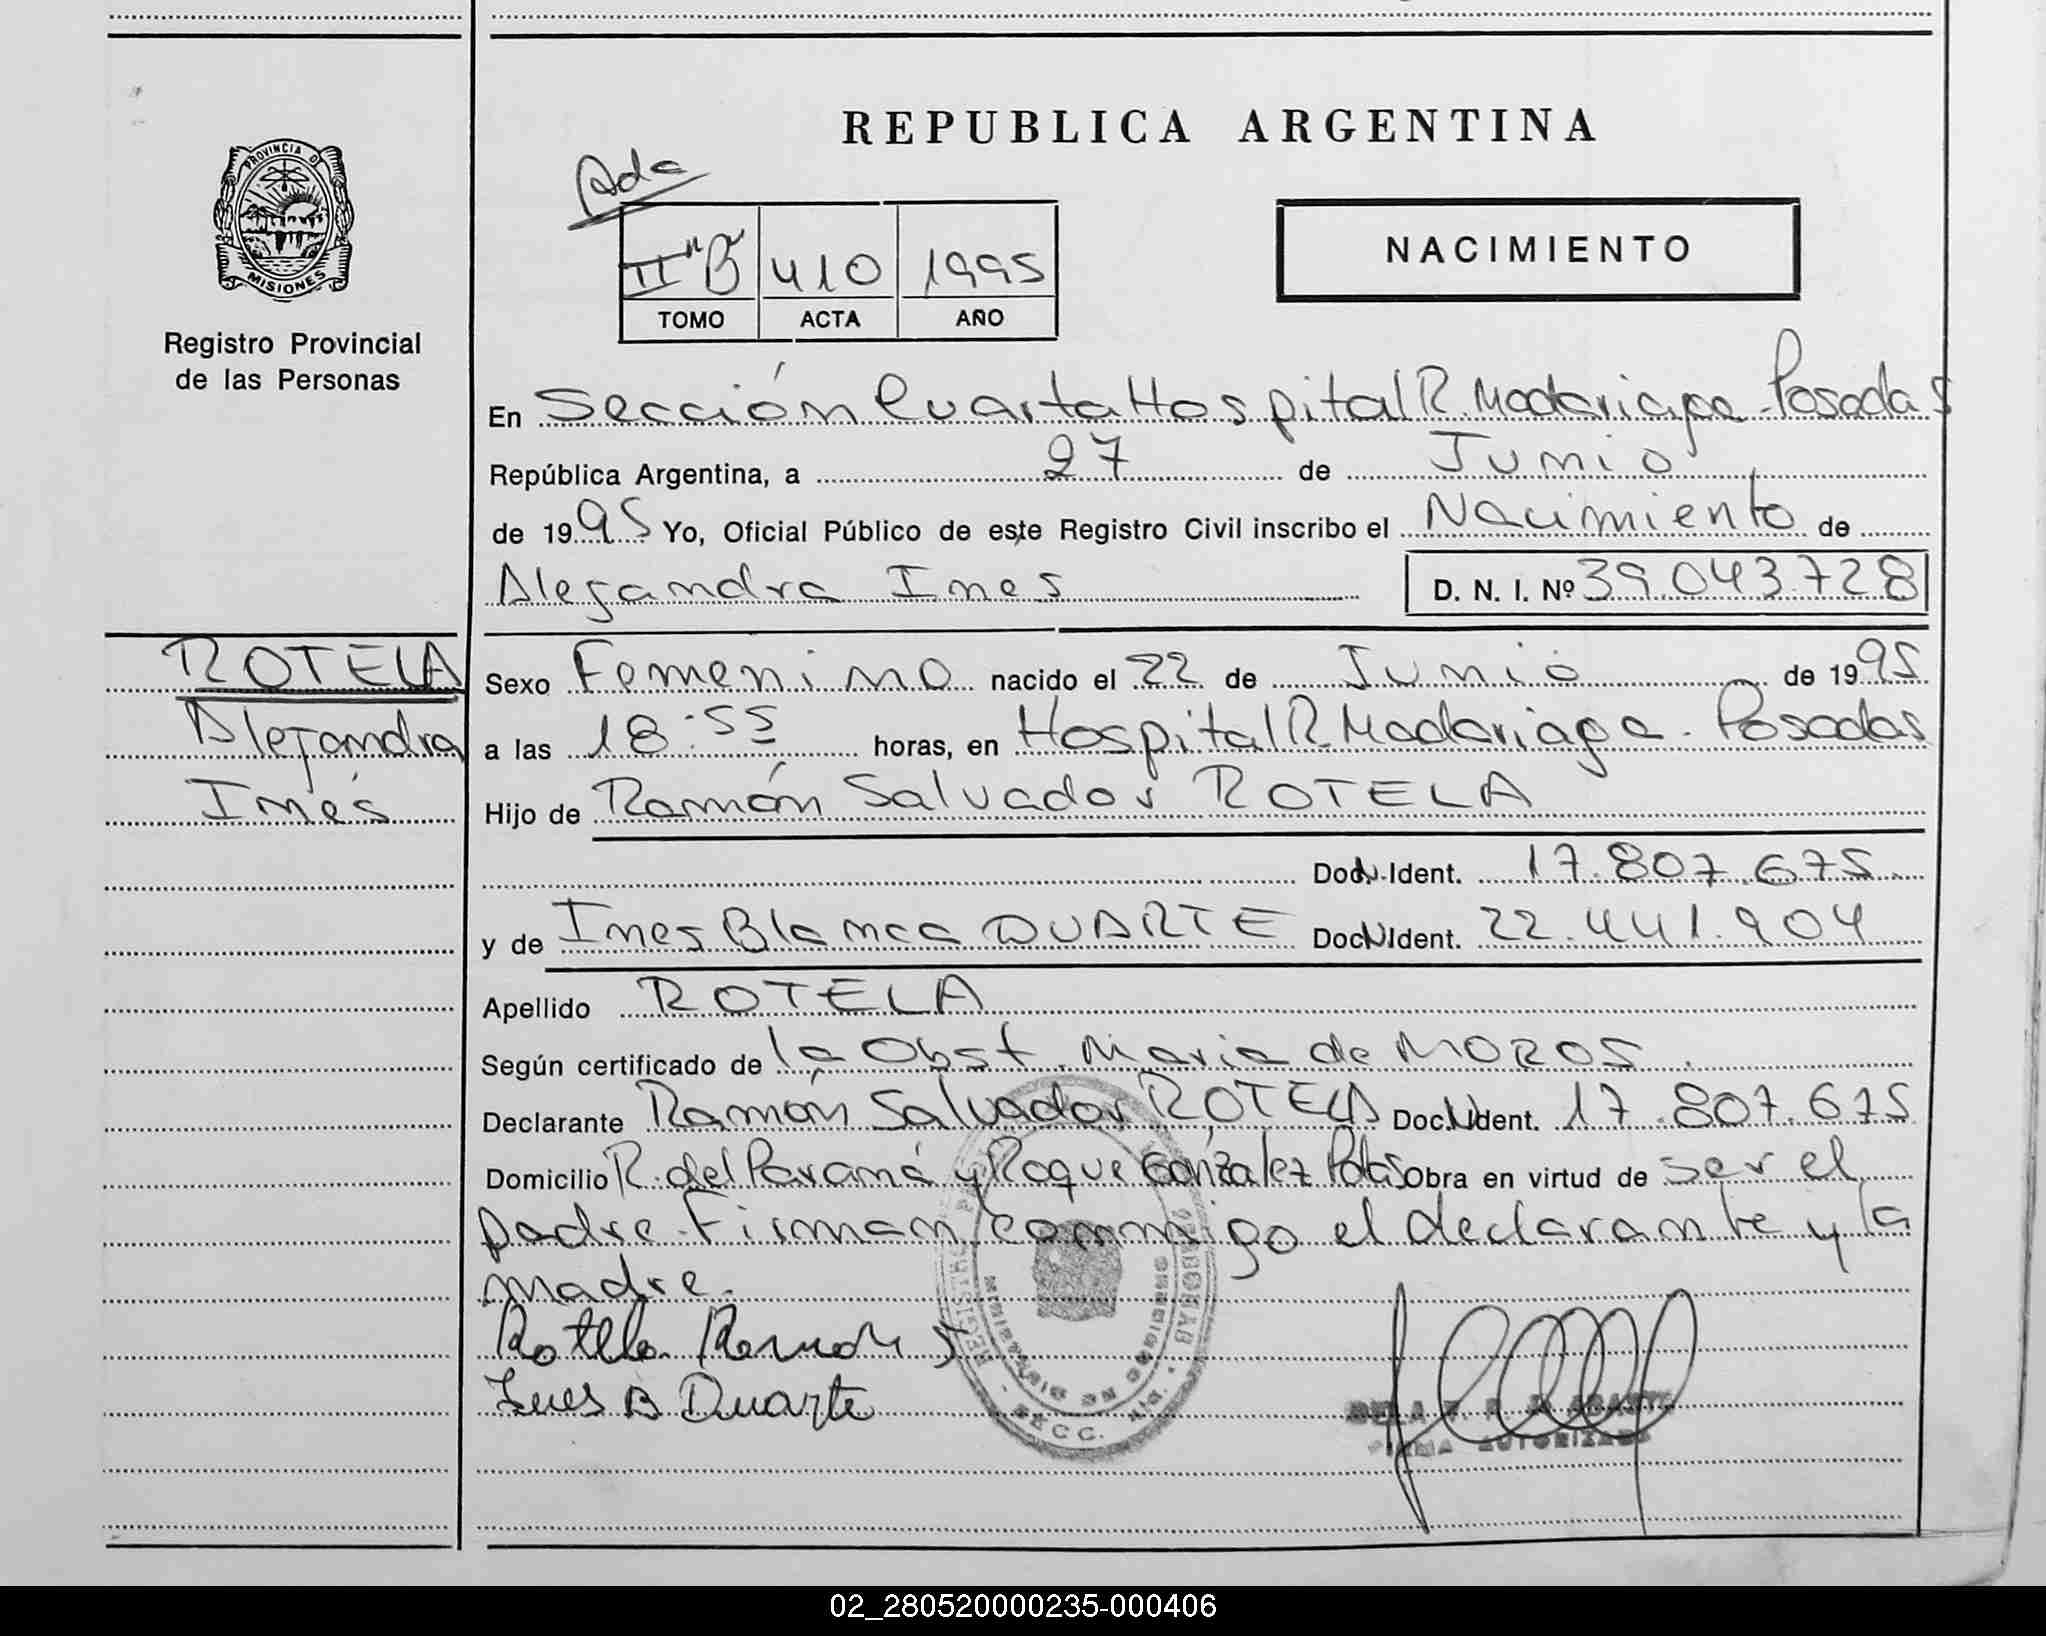 REPUBLICA ARGENTINA
PROVINCIA D
MISIONES
Registro Provincial
de las Personas
II "B" 410 1995
TOMO ACTA AÑO
NACIMIENTO
En Sección Cuarta Hospital R. Madariaga - Posadas
República Argentina, a 27 de Junio
de 1995 Yo, Oficial Público de este Registro Civil inscribo el Nacimiento de
Alejandra Ines D. N. I. Nº 39.043.728
ROTELA
Alejandra
Inés
Sexo Femenino nacido el 22 de Junio de 1995
a las 18:55 horas, en Hospital R. Madariaga - Posadas
Hijo de Ramón Salvador ROTELA
Doc. Ident. 17.807.675
y de Ines Blanca DUARTE Doc. Ident. 22.441.904
Apellido ROTELA
Según certificado de la Obst. Maria de MOROS
Declarante Ramón Salvador ROTELA Doc. Ident. 17.807.675
Domicilio R. del Paraná y Roque González Pdas Obra en virtud de ser el
padre - Firman conmigo el declarante y la
madre.
Rotela Ramon S
Ines B Duarte
SECC.
FIRMA AUTORIZADA
02_280520000235-000406